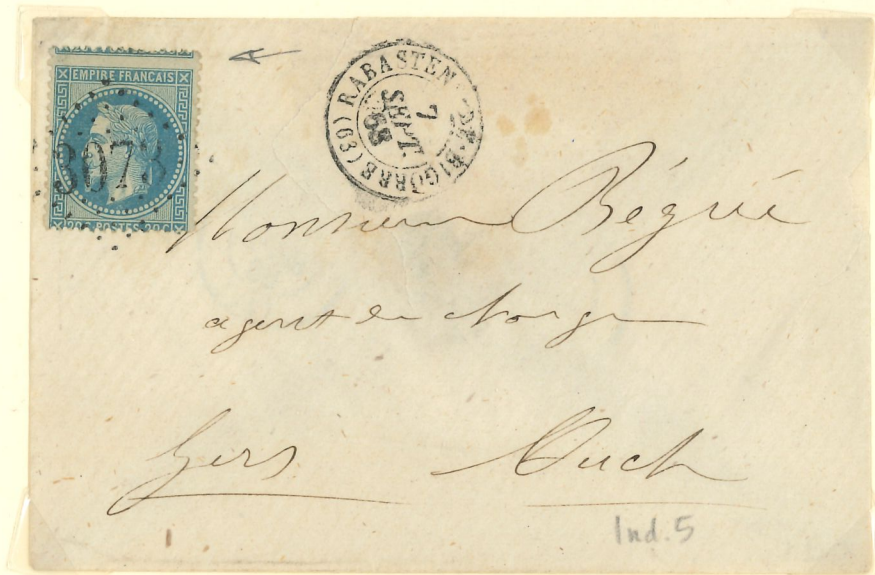 EMPIRE FRANCAIS
3073
20c POSTES 20c
RABASTENS-DE-BIGORRE (89)
7
SEPT.
68
Monsieur Bégué
agent de change
Gers Auch
Ind. 5